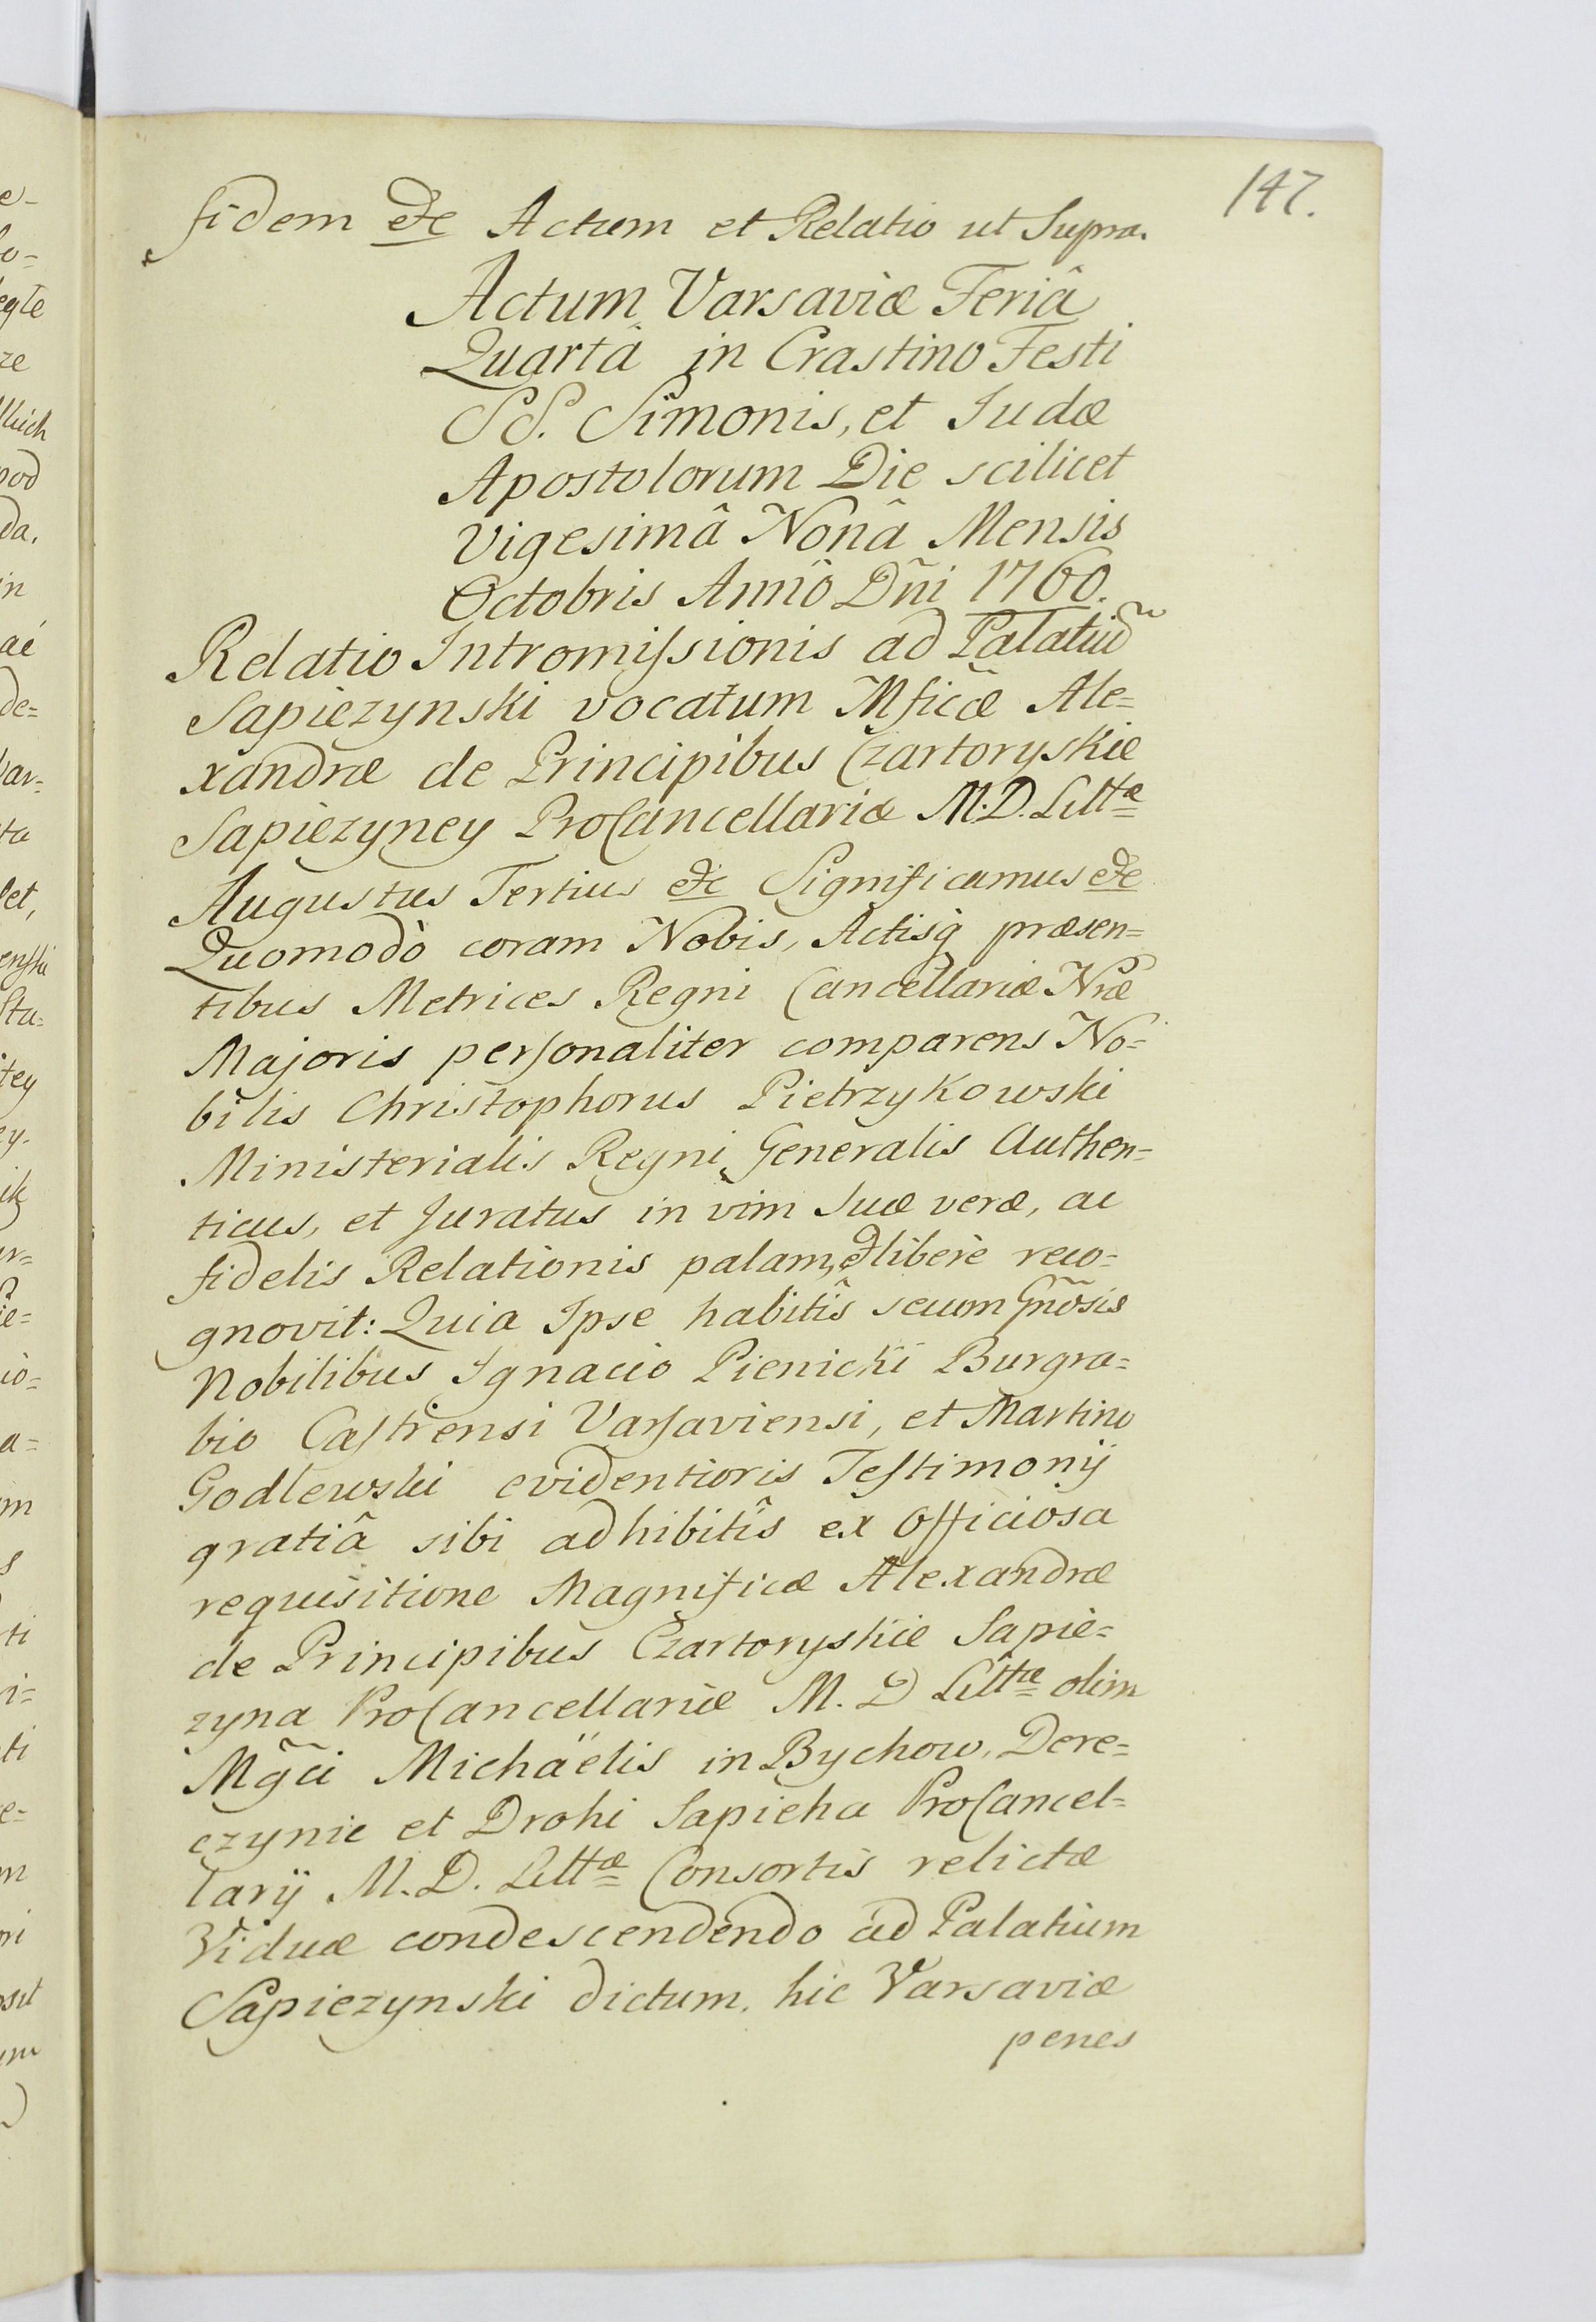 147.
fidem etc Actum et Relatio ut Supra.
Actum Varsaviæ Feriâ
Quartâ in Crastino Festi
SS. Simonis, et Judæ
Apostolorum Die scilicet
Vigesimâ Nonâ Mensis
Octobris Annô Dñi 1760.
Relatio Intromiſsionis ad Palatiũ
Sapiezynski vocatum Mficæ Ale=
xandræ de Principibus Czartoryskie
Sapiezyney ProCancellariæ M.D. Littæ
Augustus Tertius etc Significamus etc
Quomodò coram Nobis, Actisq præsen=
tibus Metrices Regni Cancellariæ Nræ
Majoris perſonaliter comparens No=
bilis Christophorus Pietrzykowski
Ministerialis Regni Generalis Authen=
ticus, et Juratus in vim Suæ veræ, ac
fidelis Relationis palam, et liberè reco=
gnovit: Quia Ipse habitîs secum Gñosis
Nobilibus Ignacio Pienicki Burgra=
bio Caſtrensi Varſaviensi, et Martino
Godlewski evidentioris Teſtimonij
gratiâ sibi adhibitîs ex Officiosa
requisitione Magnificæ Alexandræ
de Principibus Czartoryskie Sapie=
zyna ProCancellariæ M. D Littæ olim
Mg̃ci Michaëlis in Bychow, Dere=
czynie et Drohi Sapieha ProCancel=
larij M. D. Littæ Consortis relictæ
Viduæ condescendendo ad Palatium
Sapiezynski dictum, hic Varsaviæ
penes